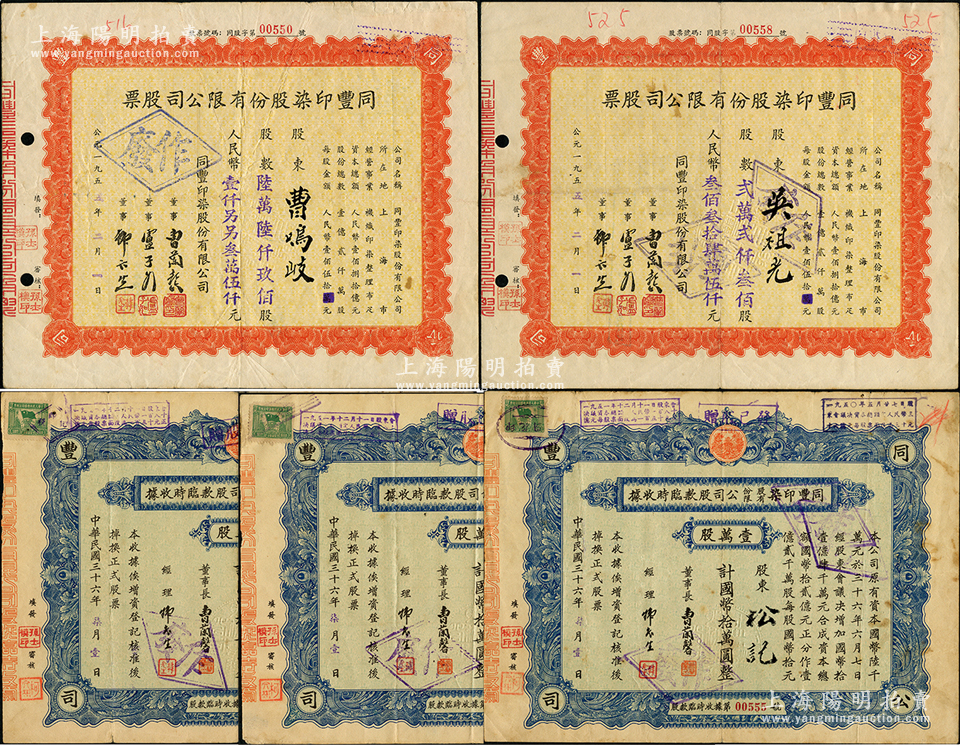 511
股票號碼：同股字第 00550 號
同豐印染股份有限公司股票
公司名稱 同豐印染股份有限公司
所在地 上海市
經營事業 機織印染整理布疋
資本總額 人民幣壹佰捌拾億元
股份總數 壹億貳仟萬股
每股金額 人民幣壹佰伍拾元
股東 曹鳴岐
股數 陸萬陸仟玖佰股
人民幣壹仟另另叁萬伍仟元
同豐印染股份有限公司
董事
董事
董事
公元一九五五年二月一日
作廢
填發：
審核：
525
525
股票號碼：同股字第 00558 號
同豐印染股份有限公司股票
公司名稱 同豐印染股份有限公司
所在地 上海市
經營事業 機織印染整理布疋
資本總額 人民幣壹佰捌拾億元
股份總數 壹億貳仟萬股
每股金額 人民幣壹佰伍拾元
股東 吳祖光
股數 貳萬貳仟叁佰股
人民幣叁佰叁拾肆萬伍仟元
同豐印染股份有限公司
董事
董事
董事
公元一九五五年二月一日
填發：
審核：
豐
公司股款臨時收據
萬股
董事長
經理
本收據俟增資登記核准後
掉換正式股票
中華民國三十六年柒月壹日
填發
審核
司
股款臨時收據第
一九五一年十二月十一日股東會
豐
公司股款臨時收據
壹萬股
計國幣拾萬圓整
董事長
經理
本收據俟增資登記核准後
掉換正式股票
中華民國三十六年柒月壹日
填發
審核
司
股款臨時收據第
同
豐
同豐印染股份有限公司股款臨時收據
壹萬股
本公司原有資本國幣陸千
萬元於三十六年六月七日
經股東會議決增加國幣拾
壹億肆千萬元合成資本總
額國幣拾貳億元正分作壹
億貳千萬股每股國幣拾元
股東 松記
計國幣拾萬圓整
董事長
經理
本收據俟增資登記核准後
掉換正式股票
中華民國三十六年柒月壹日
填發
審核
公
司
股款臨時收據第 00555 號
上海陽明拍賣
www.yangmingauction.com
上海陽明拍賣
www.yangmingauction.com
上海陽明拍賣
www.yangmingauction.com
上海陽明拍賣
www.yangmingauction.com
上海陽明拍賣
www.yangmingauction.com